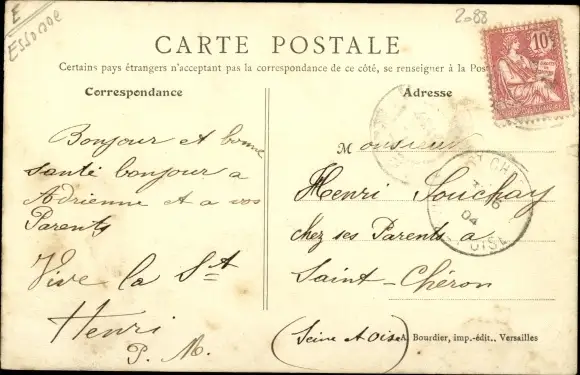 E
Essonne
2088
CARTE POSTALE
Certains pays étrangers n'acceptant pas la correspondance de ce côté, se renseigner à la Post
Correspondance
Adresse
10
Bonjour et bonne
santé bonjour a
Adrienne et a vos
Parents
Vive la St
Henri
P. M.
Monsieur
Henri Souchay
chez ses Parents a
Saint-Chéron
(Seine et Oise)
04
OISE
A. Bourdier, imp.-édit., Versailles